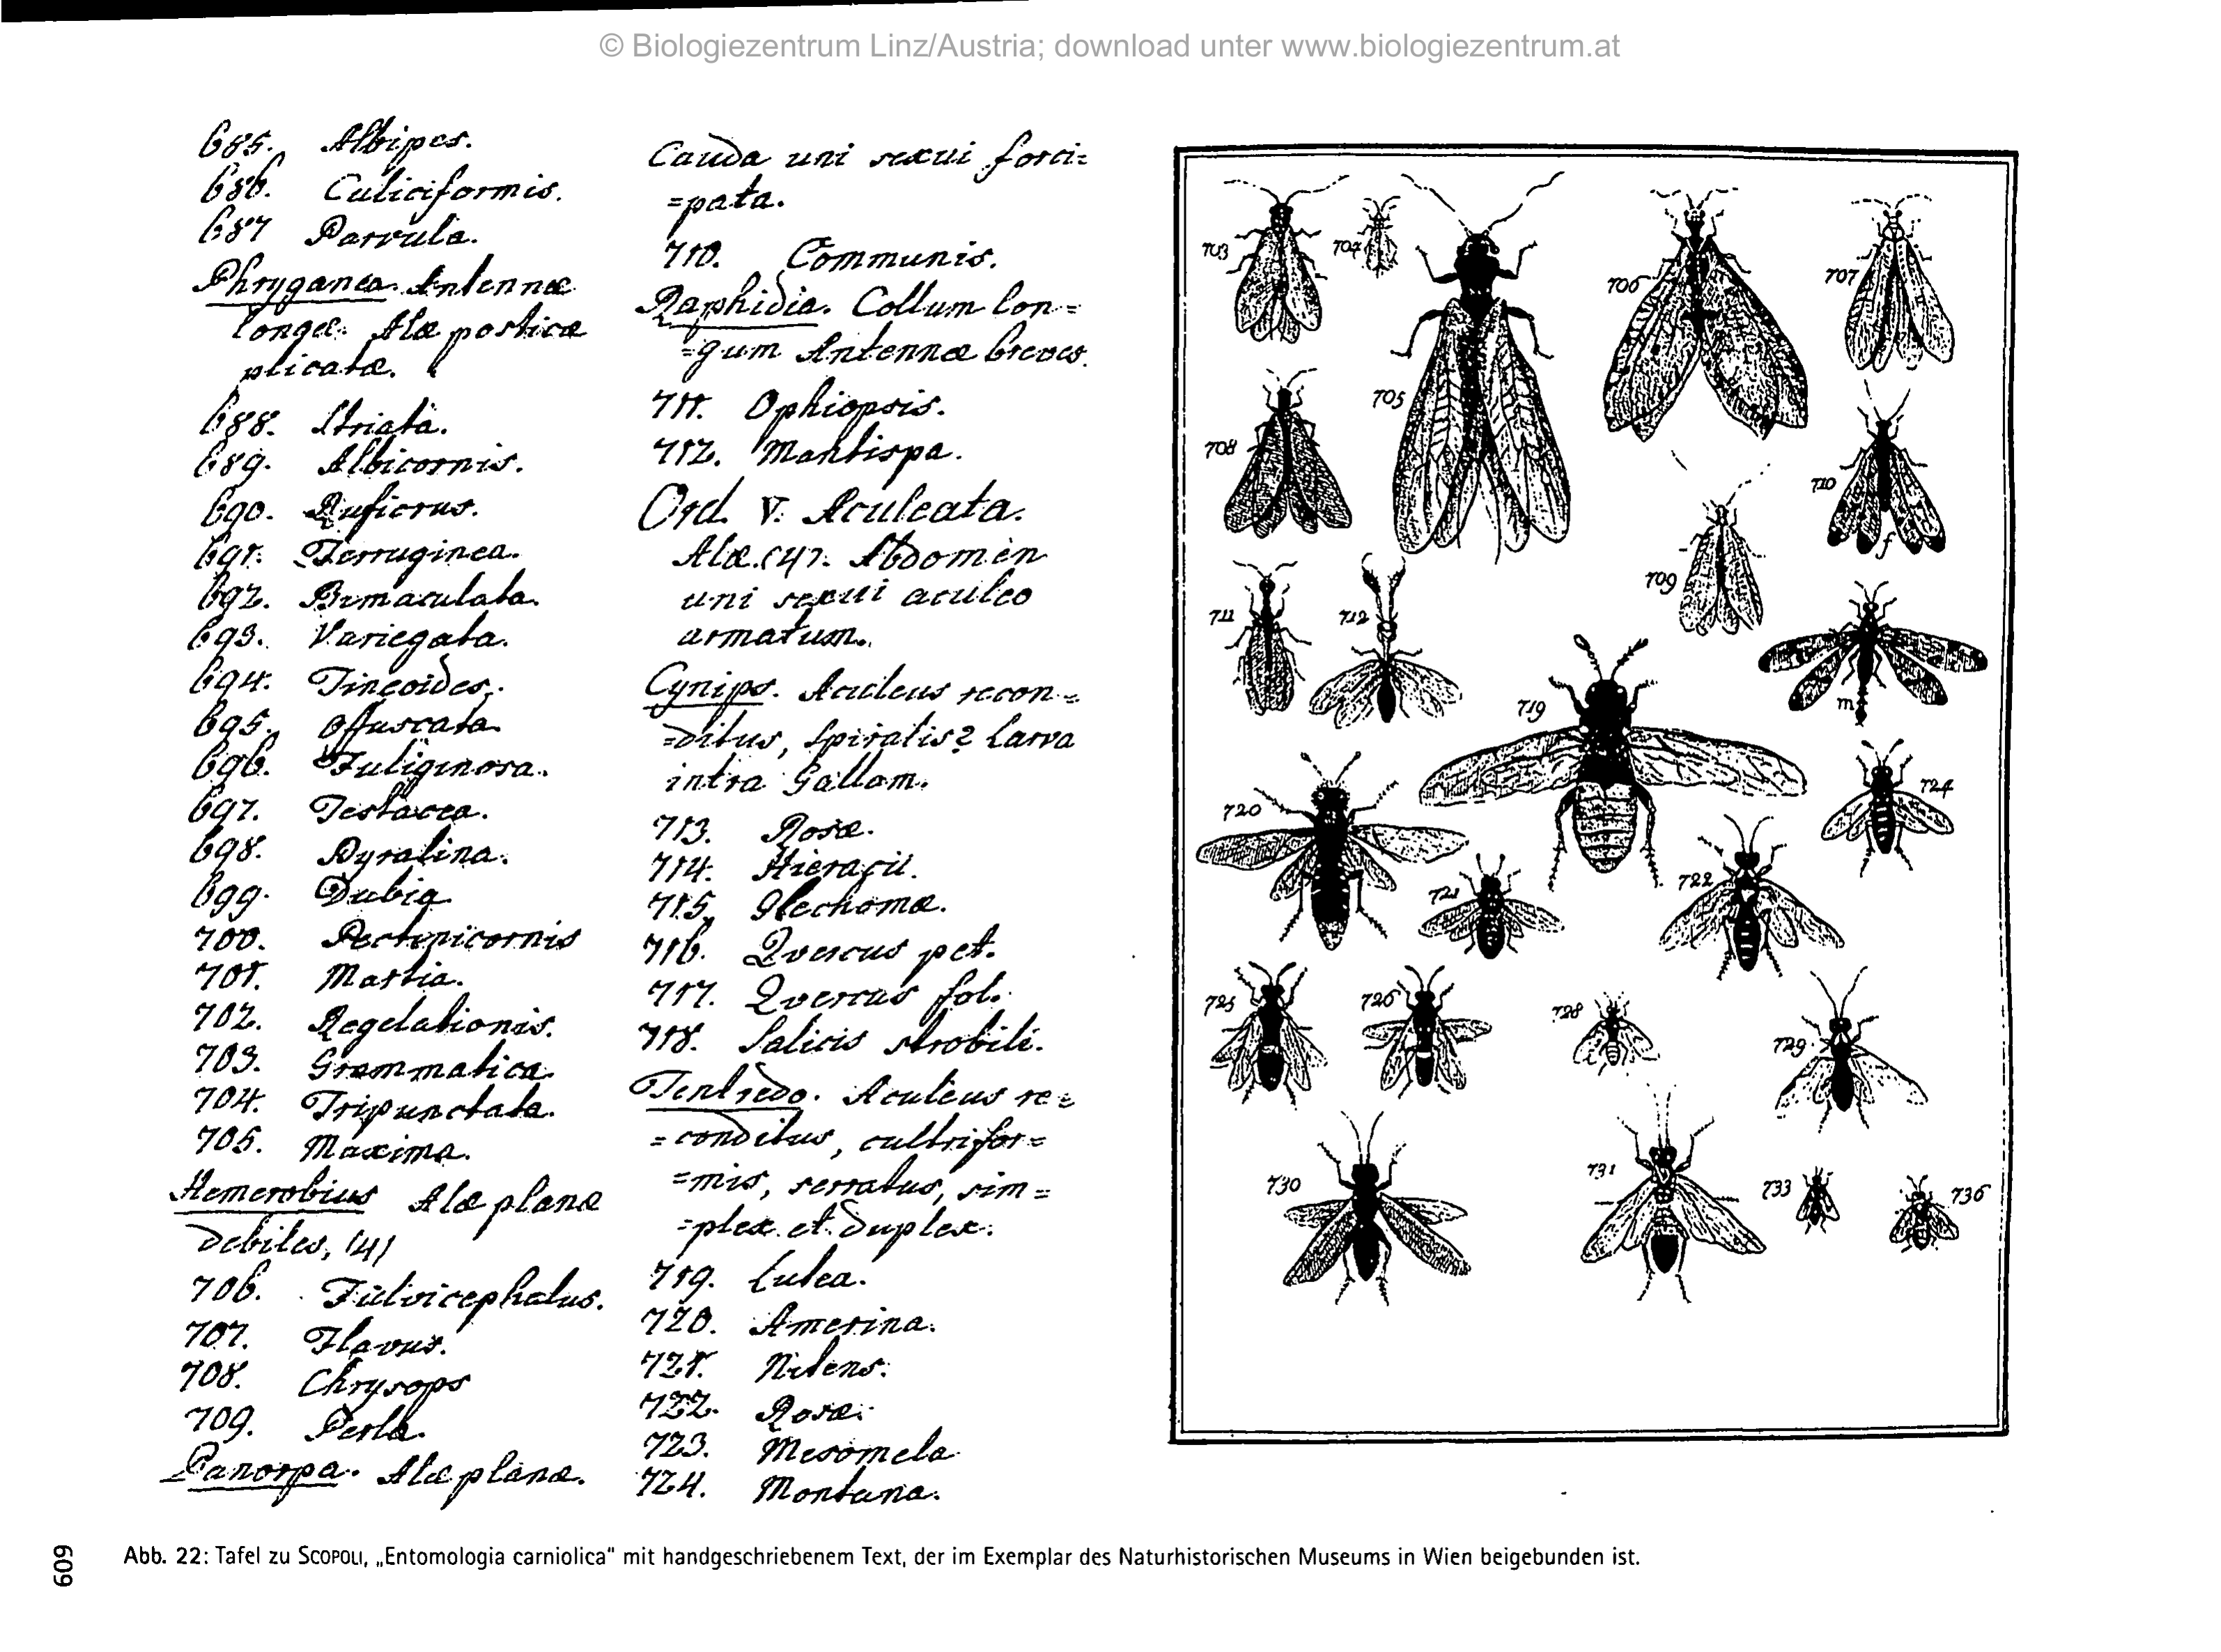 © Biologiezentrum Linz/Austria; download unter www.biologiezentrum.at
685. Albipes.
686. Culiciformis.
687 Parvula.
Phryganea. Antennæ
longæ. Alæ posticæ
plicatæ.
688. Striata.
689. Albicornis.
690. Ruficrus.
691. Ferruginea.
692. Bimaculata.
693. Variegata.
694. Tineoides.
695. Offuscata.
696. Fuliginosa.
697. Testacea.
698. Pyralina.
699. Dubia.
700. Pectinicornis
701. Martia.
702. Regelationis.
703. Grammatica.
704. Tripunctata.
705. Maxima.
Hemerobius Alæ planæ
debiles, (4)
706. Fulvicephalus.
707. Flavus.
708. Chrysops
709. Perla.
Panorpa. Alæ planæ.
Cauda uni sexui forci=
=pata.
710. Communis.
Raphidia. Collum lon=
=gum Antennæ breves.
711. Ophiopsis.
712. Mantispa.
Ord. V. Aculeata.
Alæ. (4). Abdomen
uni sexui aculeo
armatum.
Cynips. Aculeus recon=
=ditus, spiralis? Larva
intra Gallam.
713. Rosæ.
714. Hieracii.
715. Glechomæ.
716. Quercus pet.
717. Quercus fol.
718. Salicis strobili.
Tentredo. Aculeus re=
=conditus, cultrifor=
=mis, serratus, sim=
=plex et duplex.
719. Lutea.
720. Amerina.
721. Nitens.
722. Rosæ.
723. Mesomela
724. Montana.
703
704
705
706
707
708
709
710
f
711
712
m
719
720
721
722
724
725
726
728
729
730
731
733
736
609
Abb. 22: Tafel zu SCOPOLI, „Entomologia carniolica" mit handgeschriebenem Text, der im Exemplar des Naturhistorischen Museums in Wien beigebunden ist.